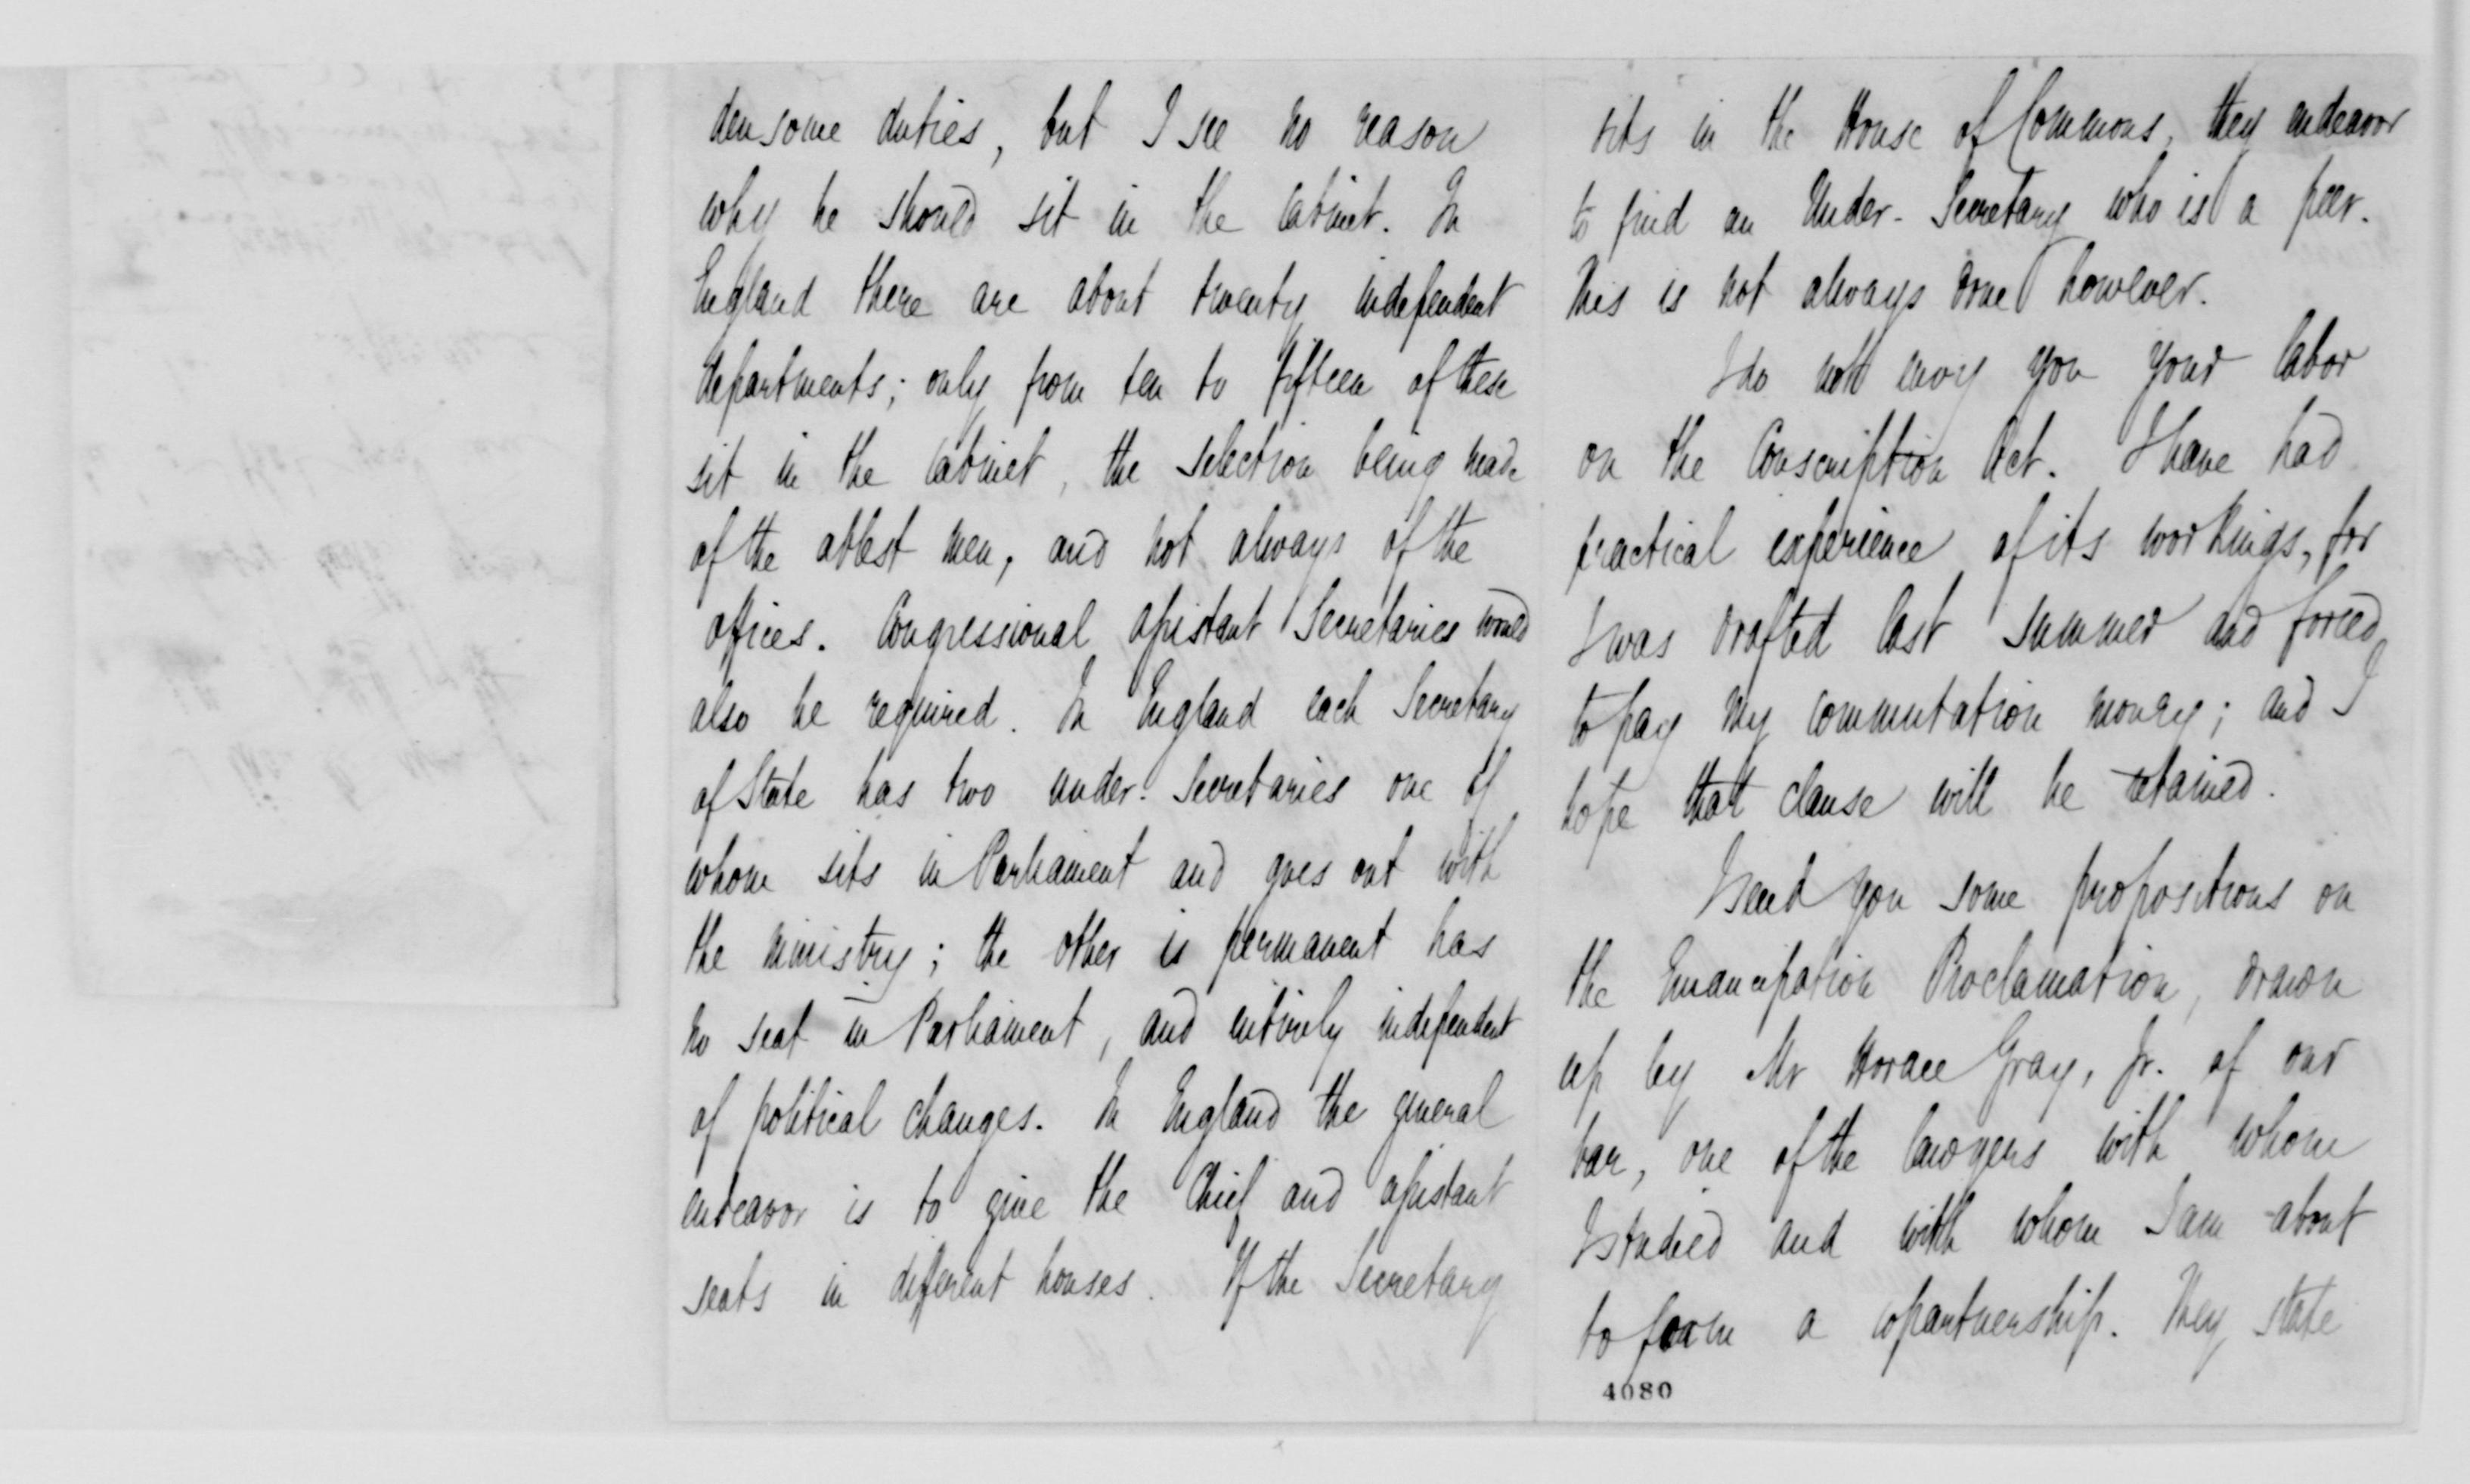 densome duties, but I see no reason
why he should sit in the Cabinet. In
England there are about twenty independent
departments; only from ten to fifteen of these
sit in the Cabinet, the selection being made
of the ablest men, and not always of the
offices. Congressional assistant Secretaries would
also be required. In England each Secretary
of State has two under-Secretaries one of
whom sits in Parliament and goes out with
the ministry; the other is permanent has
no seat in Parliament, and entirely independent
of political changes. In England the general
endeavor is to give the Chief and assistant
seats in different houses. If the Secretary
sits in the House of Commons, they endeavor
to find an Under-Secretary who is a peer.
This is not always done however.
I do not envy you your labor
on the Conscription Act. I have had
practical experience of its workings, for
I was drafted last summer and forced
to pay my commutation money; and I
hope that clause will be retained.
I send you some propositions on
the Emancipation Proclamation, drawn
up by Mr Horace Gray, Jr. of our
bar, one of the lawyers with whom
I studied and with whom I am about
to form a copartnership. They state
4080